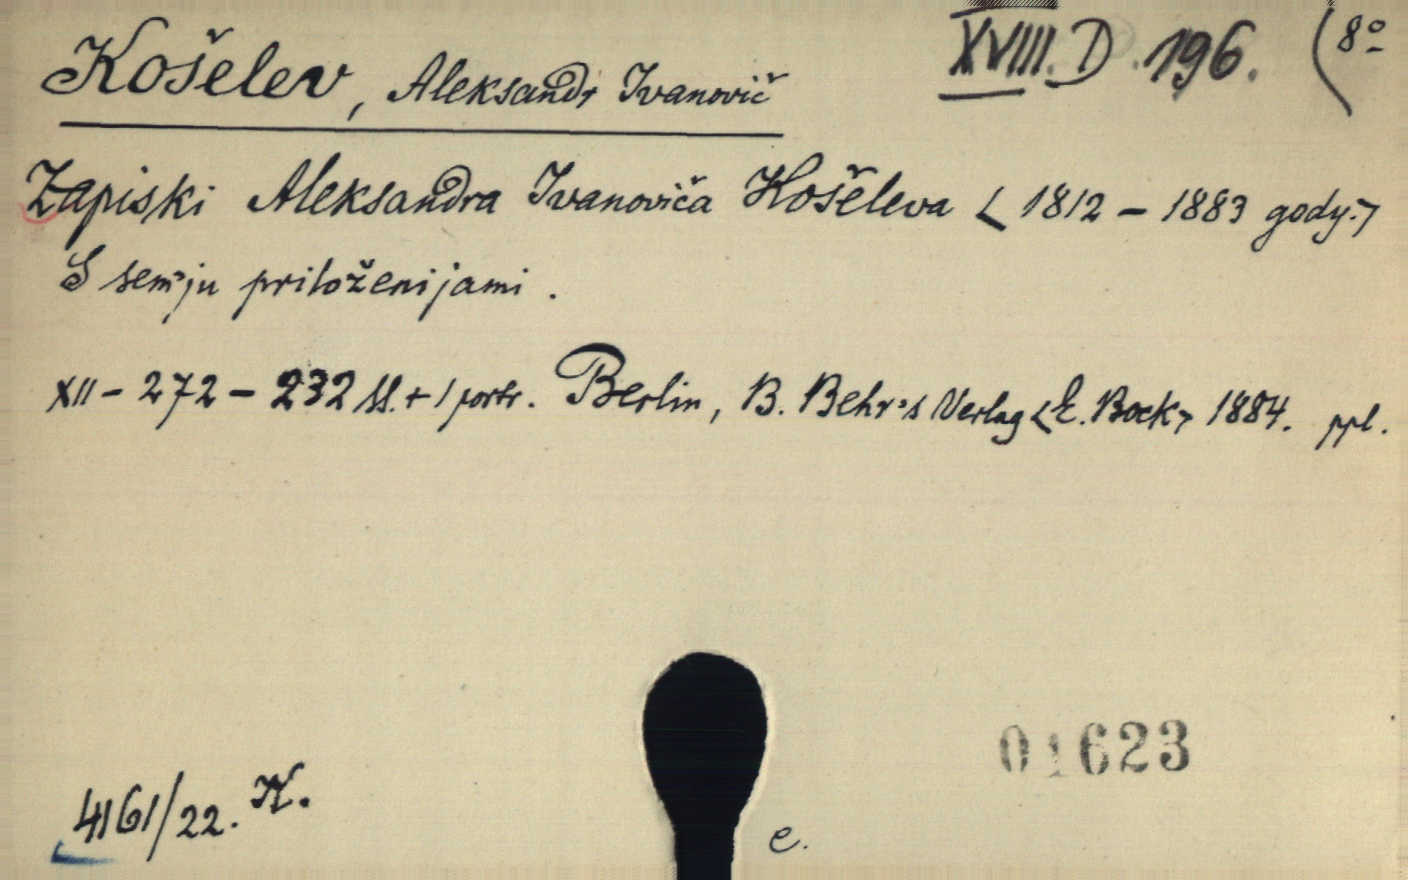 Košelev, Aleksandr Ivanovič XVIII. D. 196. (8º
Zapiski Aleksandra Ivanoviča Košeleva <1812 - 1883 gody.>
S sem'ju priloženijami.
XII - 272 - 232 SS. + 1 portr. Berlin, B. Behr's Verlag <E. Bock> 1884. ppl.
01623
4161/22. K.
e.